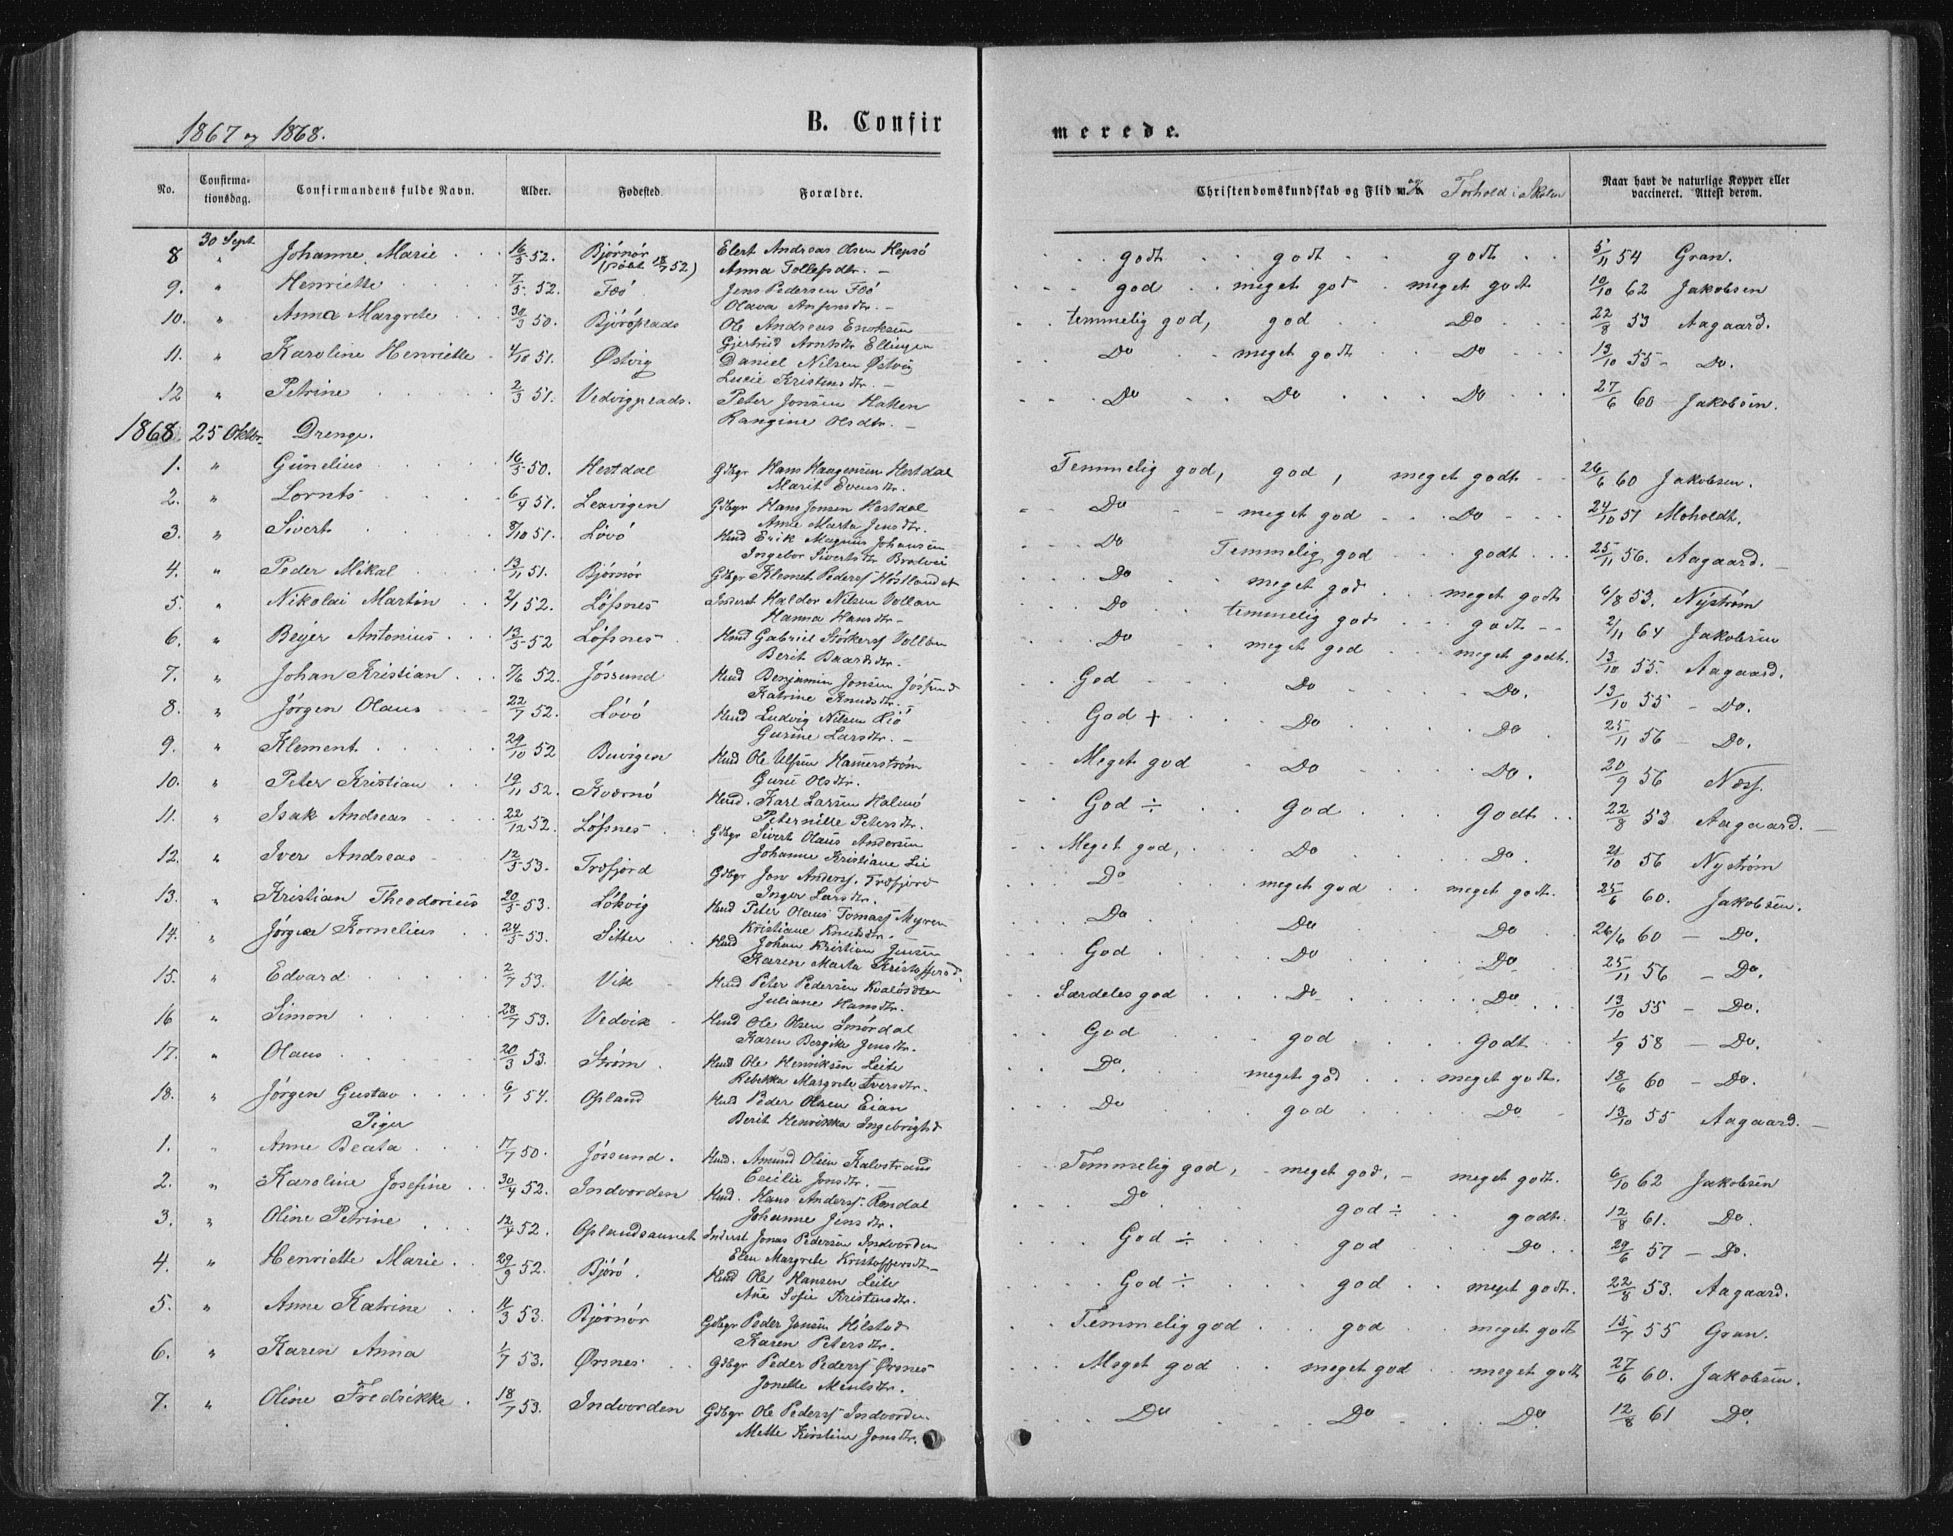 1867 og 1868.
B. Confirmerede.
No. Confirmationsdag. Confirmandens fulde Navn. Alder. Fødested. Forældre. Christendomskundskab og Flid m. Forhold i Skolen Naar havt de naturlige Kopper eller vaccineret. Attest derom.
8 30 Sept. Johanne Marie 16/5 52. Bjørnør (døbt 18/7 52) Elert Andreas Olsen Hepsö godt godt godt 5/11 54 Gran.
Anna Tollefsdtr. –
9. " Henriette 7/5 52. Föö Jens Pedersen Föö god meget god meget godt 10/10 62 Jakobsen
Olava dtr. –
10. " Anna Margrete 30/3 50. Björöplads Ole Andreas temmelig god, god Do 22/8 53 Aagaard.
Gjertrud Ellingen
11. " Karoline Henriette 4/10 51. Østvig Daniel Nilsen Østvig Do meget godt Do 13/10 55 – Do.
Lucie Kristensdtr. –
12 " Petrine 2/3 51. Vedvigplads. Peter Jonsen Hatten Do Do Do 27/6 60 Jakobsen.
Rangine Olsdtr. –
1868. 25 Oktbr. Drenge.
1. " Gunelius 16/5 50. Hestdal Gdbgr Hans Haagensen Hestdal Temmelig god, god, meget godt 26/6 60 Jakobsen.
Marit Evensdtr.
2. " Lornts 6/4 51. Leavigen Gdbgr Hans Jonsen Hestdal Do meget god Do 24/10 51 Moholdt.
Ane Marta Jensdtr.
3. " Sivert 8/10 51. Lövö Husd Erik Magnus Johansen Do Temmelig god godt 25/11 56. Aagaard. –
Ingebor Sivertsdtr
4. " Peder Mikal 13/11 51. Bjørnør Gdbgr Klemet Peders. Do meget god meget godt 6/8 53. Nyström
5. " Nikolai Martin 2/1 52. Löfsnes Inderst Haldor Nilsen Vollan Do temmelig god godt 2/11 64 Jakobsen
Hanna Hansdtr –
6. " Beyer Antonius 13/5 52 Löfsnes Husd Gabriel Vollan Do meget god meget godt. 13/10 55. Aagaard.
Berit Baardsdtr.
7. " Johan Kristian 7/6 52. Jössund Husd Benjamin Jonsen Jössund God Do Do. 13/10 55 – Do.
Katrine Knudsdtr.
8. " Jørgen Olaus 22/7 52. Lövö Husd Ludvig Nilsen God + Do Do 25/11 56 – Do.
Gurine Larsdtr. –
9. " Klement 29/10 52 Buvigen Husd Ole Hamerstrøm Meget god Do Do. 20/9 56 Næss.
Guru Olsdtr.
10. " Peter Kristian 19/11 52. Kværnö Husd. Karl Larsen Halmö God ÷ god Godt 22/8 53 Aagaard. –
Peternille Petersdtr.
11. " Isak Andreas 22/12 52. Löfsnes Gdbgr Sivert Olaus Andersen Meget god, Do Do. 21/10 56 Nyström
Johanne Kristiane
12. " Iver Andreas 12/5 53. Træfjord Gdbgr Jon Anders. Træfjord Do meget god meget godt. 25/6 60. Jakobsen.
Inger Larsdtr.
13. " Kristian Theodorius 20/5 53. Lökvig Husd Peter Olaus Tomass. Myren Do Do Do 26/6 60 – Do.
Kristiane Knudsdtr.
14. " Jørgen Kornelius 24/5 53. Sitter Husd Johan Kristian Jensen God Do Do 25/11 56 – Do.
Karen Marta Kristoffersd.
15. " Edvard 2/7 53. Vik Husd Peter Pedersen Særdeles god Do Do 13/10 55 – Do.
Juliane Hansdtr.
16 " Simon 28/7 53. Vedvik Husd Ole Olsen Smördal God god Godt 1/9 58 – Do.
Karen Bergite Jensdtr.
17. " Olaus 20/3 53. Strøm Husd Ole Henriksen Leite Do. meget god meget godt. 18/6 60 – Do.
Rebekka Margrete Iversdtr.
18. " Jørgen Gustav 6/1 54. Opland Husd Peder Olsen Eian Do god Do 13/10 55 Aagaard. –
Berit Henrikka Ingebrigtsd
Piger
1. " Anne Beata 17/7 50. Jössund. Husd. Amund Olsen Temmelig god, meget god, meget godt. 6/10 62 Jakobsen
Cecilie Jonsdtr.
2. " Karoline Josefine 30/4 52. Indvorden Husd. Hans Anders. Do god ÷ godt. 12/8 61. Do.
Johanne Jensdtr.
3. " Oline Petrine 12/4 52. Oplandsaunet Inderst Jonas Pedersen Indvorden God ÷ god Do 29/6 57 – Do.
Elen Margrete Kristoffersdtr –
4. " Henriette Marie 29/9 52. Björö. Husd Ole Hansen Leite God ÷ god meget godt. 22/8 53. Aagaard.
Ane Sofie Kristensdtr.
5. " Anne Katrine 11/3 53. Bjørnør Gdbgr Peder Jensen Hilstad Temmelig god god meget godt 15/7 55 Gran.
Karen Petersdtr.
6. " Karen Anna 1/7 53. Ørsnes Gdbgr Peder Peders. Ørsnes Meget god meget god meget godt 27/6 60. Jakobsen.
Jonette
7. " Oline Fredrikke 18/7 53. Indvorden Gdbgr Ole Peders. Indvorden Do Do Do 12/8 61 Do.
Mette Kirstine Jonsdtr.